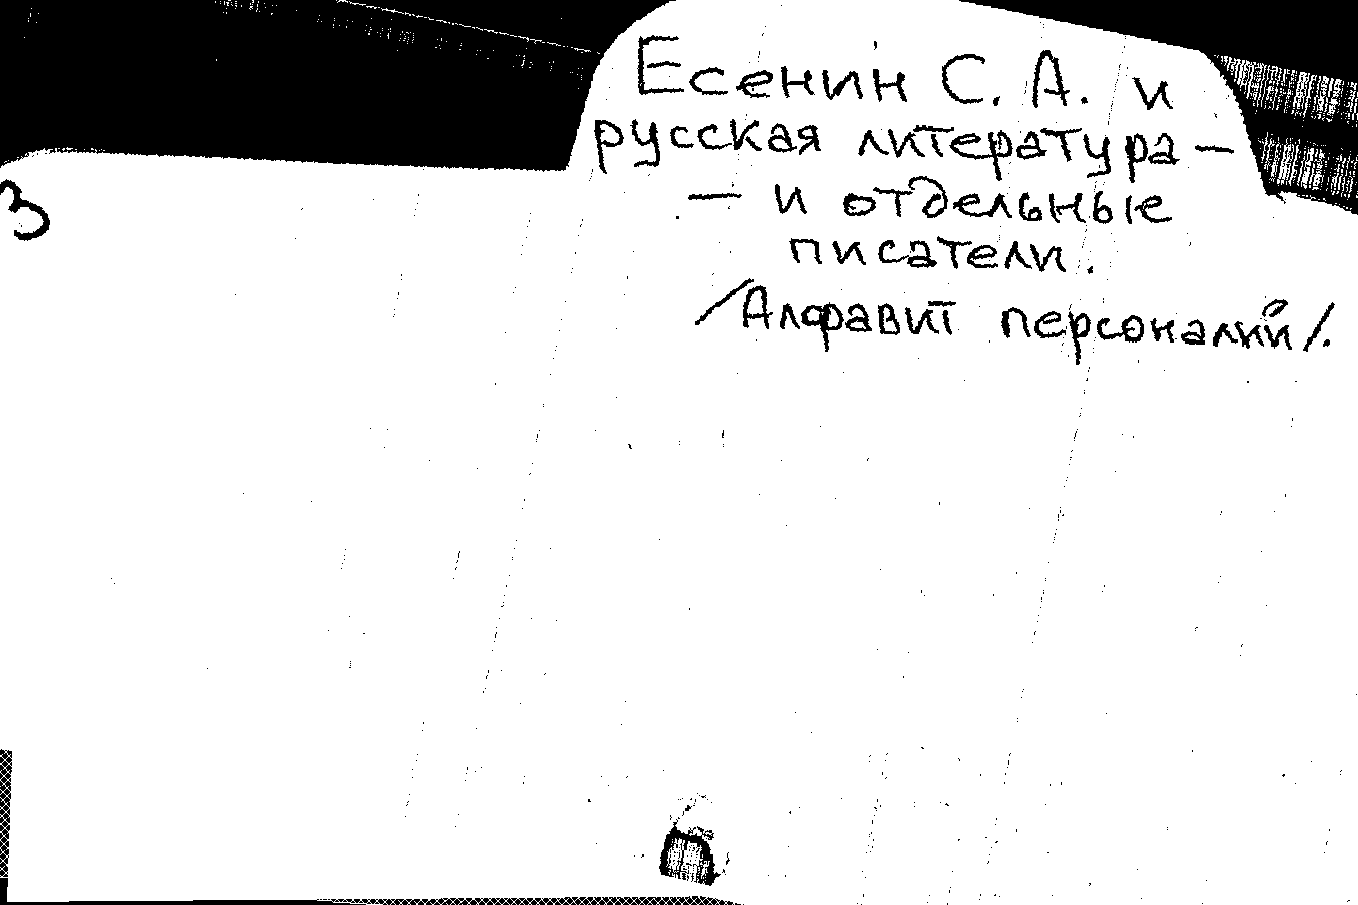 Есенин С. А. и
русская литература –
– и отдельные
писатели.
/Алфавит персоналий/.